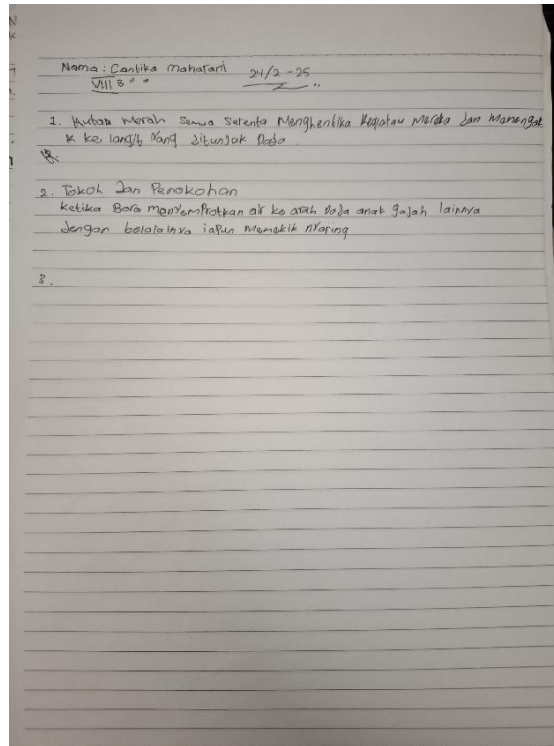 Nama : Cantika maharani 24/2-25
VIII B
1. Hutan Merah Semua Serenta Menghentika Kegiatan Mereka dan Manengok
k ke langit Yang ditunjuk Dodo
2. Tokoh Dan Penokohan
Ketika Bora manyemprotkan air ke arah Doda anak gajah lainnya
dengan belalainya iapun Memekik nyaring
3.